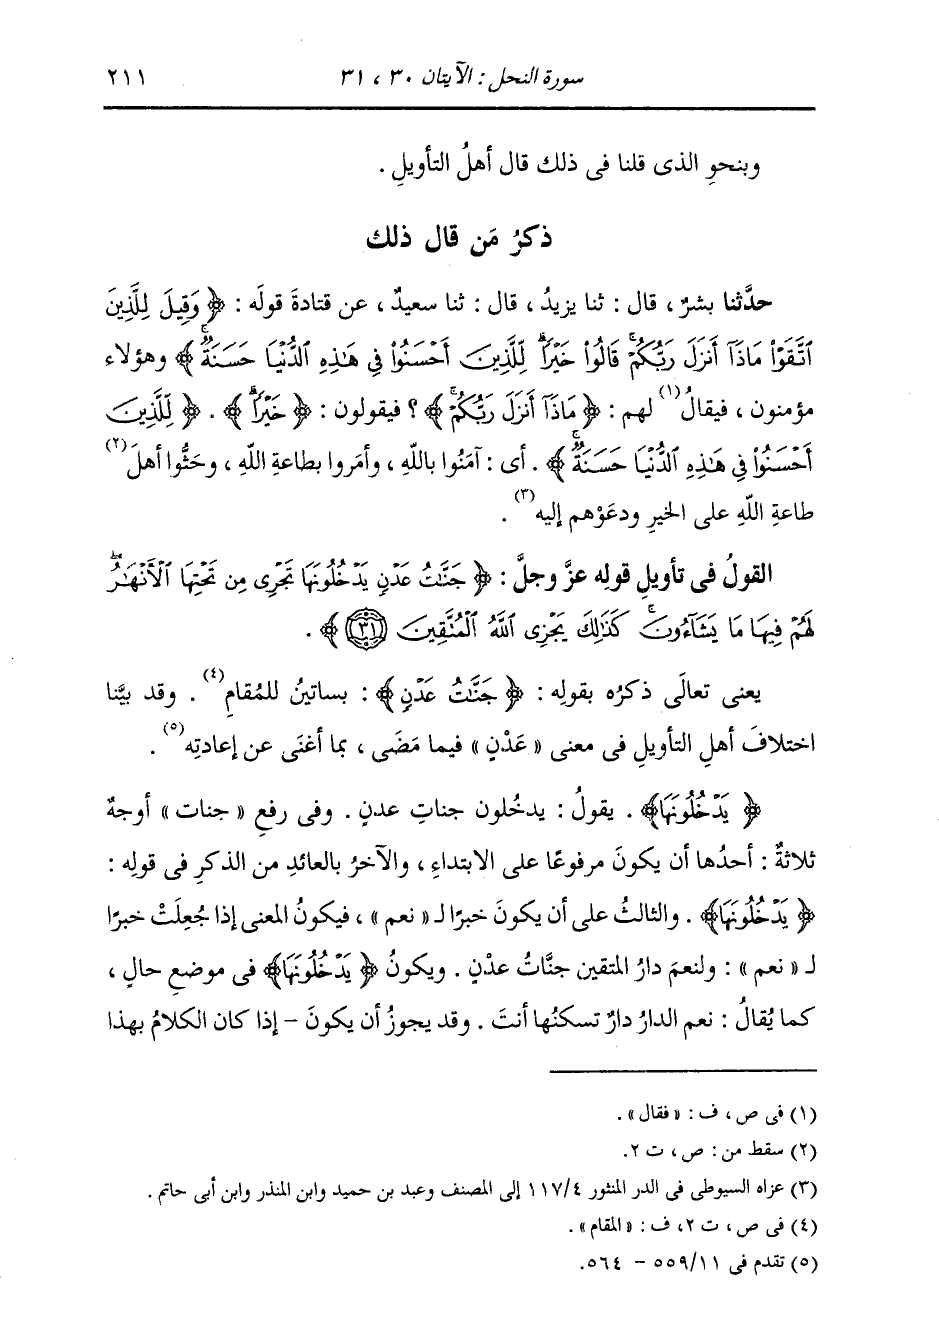 سورة النحل : الآيتان ٣٠ ، ٣١ ٢١١
وبنحوِ الذى قلنا فى ذلك قال أهلُ التأويلِ .
ذكرُ مَن قال ذلك
حدَّثنا بشرٌ ، قال : ثنا يزيدُ ، قال : ثنا سعيدٌ ، عن قتادةَ قولَه : ﴿ وَقِيلَ لِلَّذِينَ
ٱتَّقَوۡاْ مَاذَآ أَنزَلَ رَبُّكُمۡۚ قَالُواْ خَيۡرٗاۗ لِّلَّذِينَ أَحۡسَنُواْ فِي هَٰذِهِ ٱلدُّنۡيَا حَسَنَةٞۚ ﴾ وهؤلاء
مؤمنون ، فيقالُ(١) لهم : ﴿ مَاذَآ أَنزَلَ رَبُّكُمۡۚ ﴾ ؟ فيقولون : ﴿ خَيۡرٗاۗ ﴾ . ﴿ لِّلَّذِينَ
أَحۡسَنُواْ فِي هَٰذِهِ ٱلدُّنۡيَا حَسَنَةٞۚ ﴾ . أى : آمَنُوا باللَّهِ ، وأمَروا بطاعةِ اللَّهِ ، وحَثُّوا أهلَ(٢)
طاعةِ اللَّهِ على الخيرِ ودعَوْهم إليه(٣) .
القولُ فى تأويلِ قولِه عزَّ وجلَّ : ﴿ جَنَّٰتُ عَدۡنٖ يَدۡخُلُونَهَا تَجۡرِي مِن تَحۡتِهَا ٱلۡأَنۡهَٰرُۖ
لَهُمۡ فِيهَا مَا يَشَآءُونَۚ كَذَٰلِكَ يَجۡزِي ٱللَّهُ ٱلۡمُتَّقِينَ ٣١ ﴾ .
يعنى تعالَى ذكرُه بقولِه : ﴿ جَنَّٰتُ عَدۡنٖ ﴾ : بساتينُ للمُقامِ(٤) . وقد بيَّنا
اختلافَ أهلِ التأويلِ فى معنى « عَدْنٍ » فيما مَضَى ، بما أغنَى عن إعادتِه(٥) .
﴿ يَدۡخُلُونَهَا﴾ . يقولُ : يدخُلون جناتِ عدنٍ . وفى رفعِ « جنات » أوجهٌ
ثلاثةٌ : أحدُها أن يكونَ مرفوعًا على الابتداءِ ، والآخرُ بالعائدِ من الذكرِ فى قولِه :
﴿ يَدۡخُلُونَهَا﴾ . والثالثُ على أن يكونَ خبرًا لـ « نعم » ، فيكونُ المعنى إذا جُعِلَتْ خبرًا
لـ « نعم » : ولنعمَ دارُ المتقين جنَّاتُ عدْنٍ . ويكونُ ﴿ يَدۡخُلُونَهَا﴾ فى موضعِ حالٍ ،
كما يُقالُ : نعم الدارُ دارٌ تسكنُها أنتَ . وقد يجوزُ أن يكونَ – إذا كان الكلامُ بهذا
(١) فى ص ، ف : « فقال » .
(٢) سقط من : ص ، ت ٢.
(٣) عزاه السيوطى فى الدر المنثور ١١٧/٤ إلى المصنف وعبد بن حميد وابن المنذر وابن أبى حاتم .
(٤) فى ص ، ت ٢، ف : « المقام » .
(٥) تقدم فى ٥٥٩/١١ – ٥٦٤.